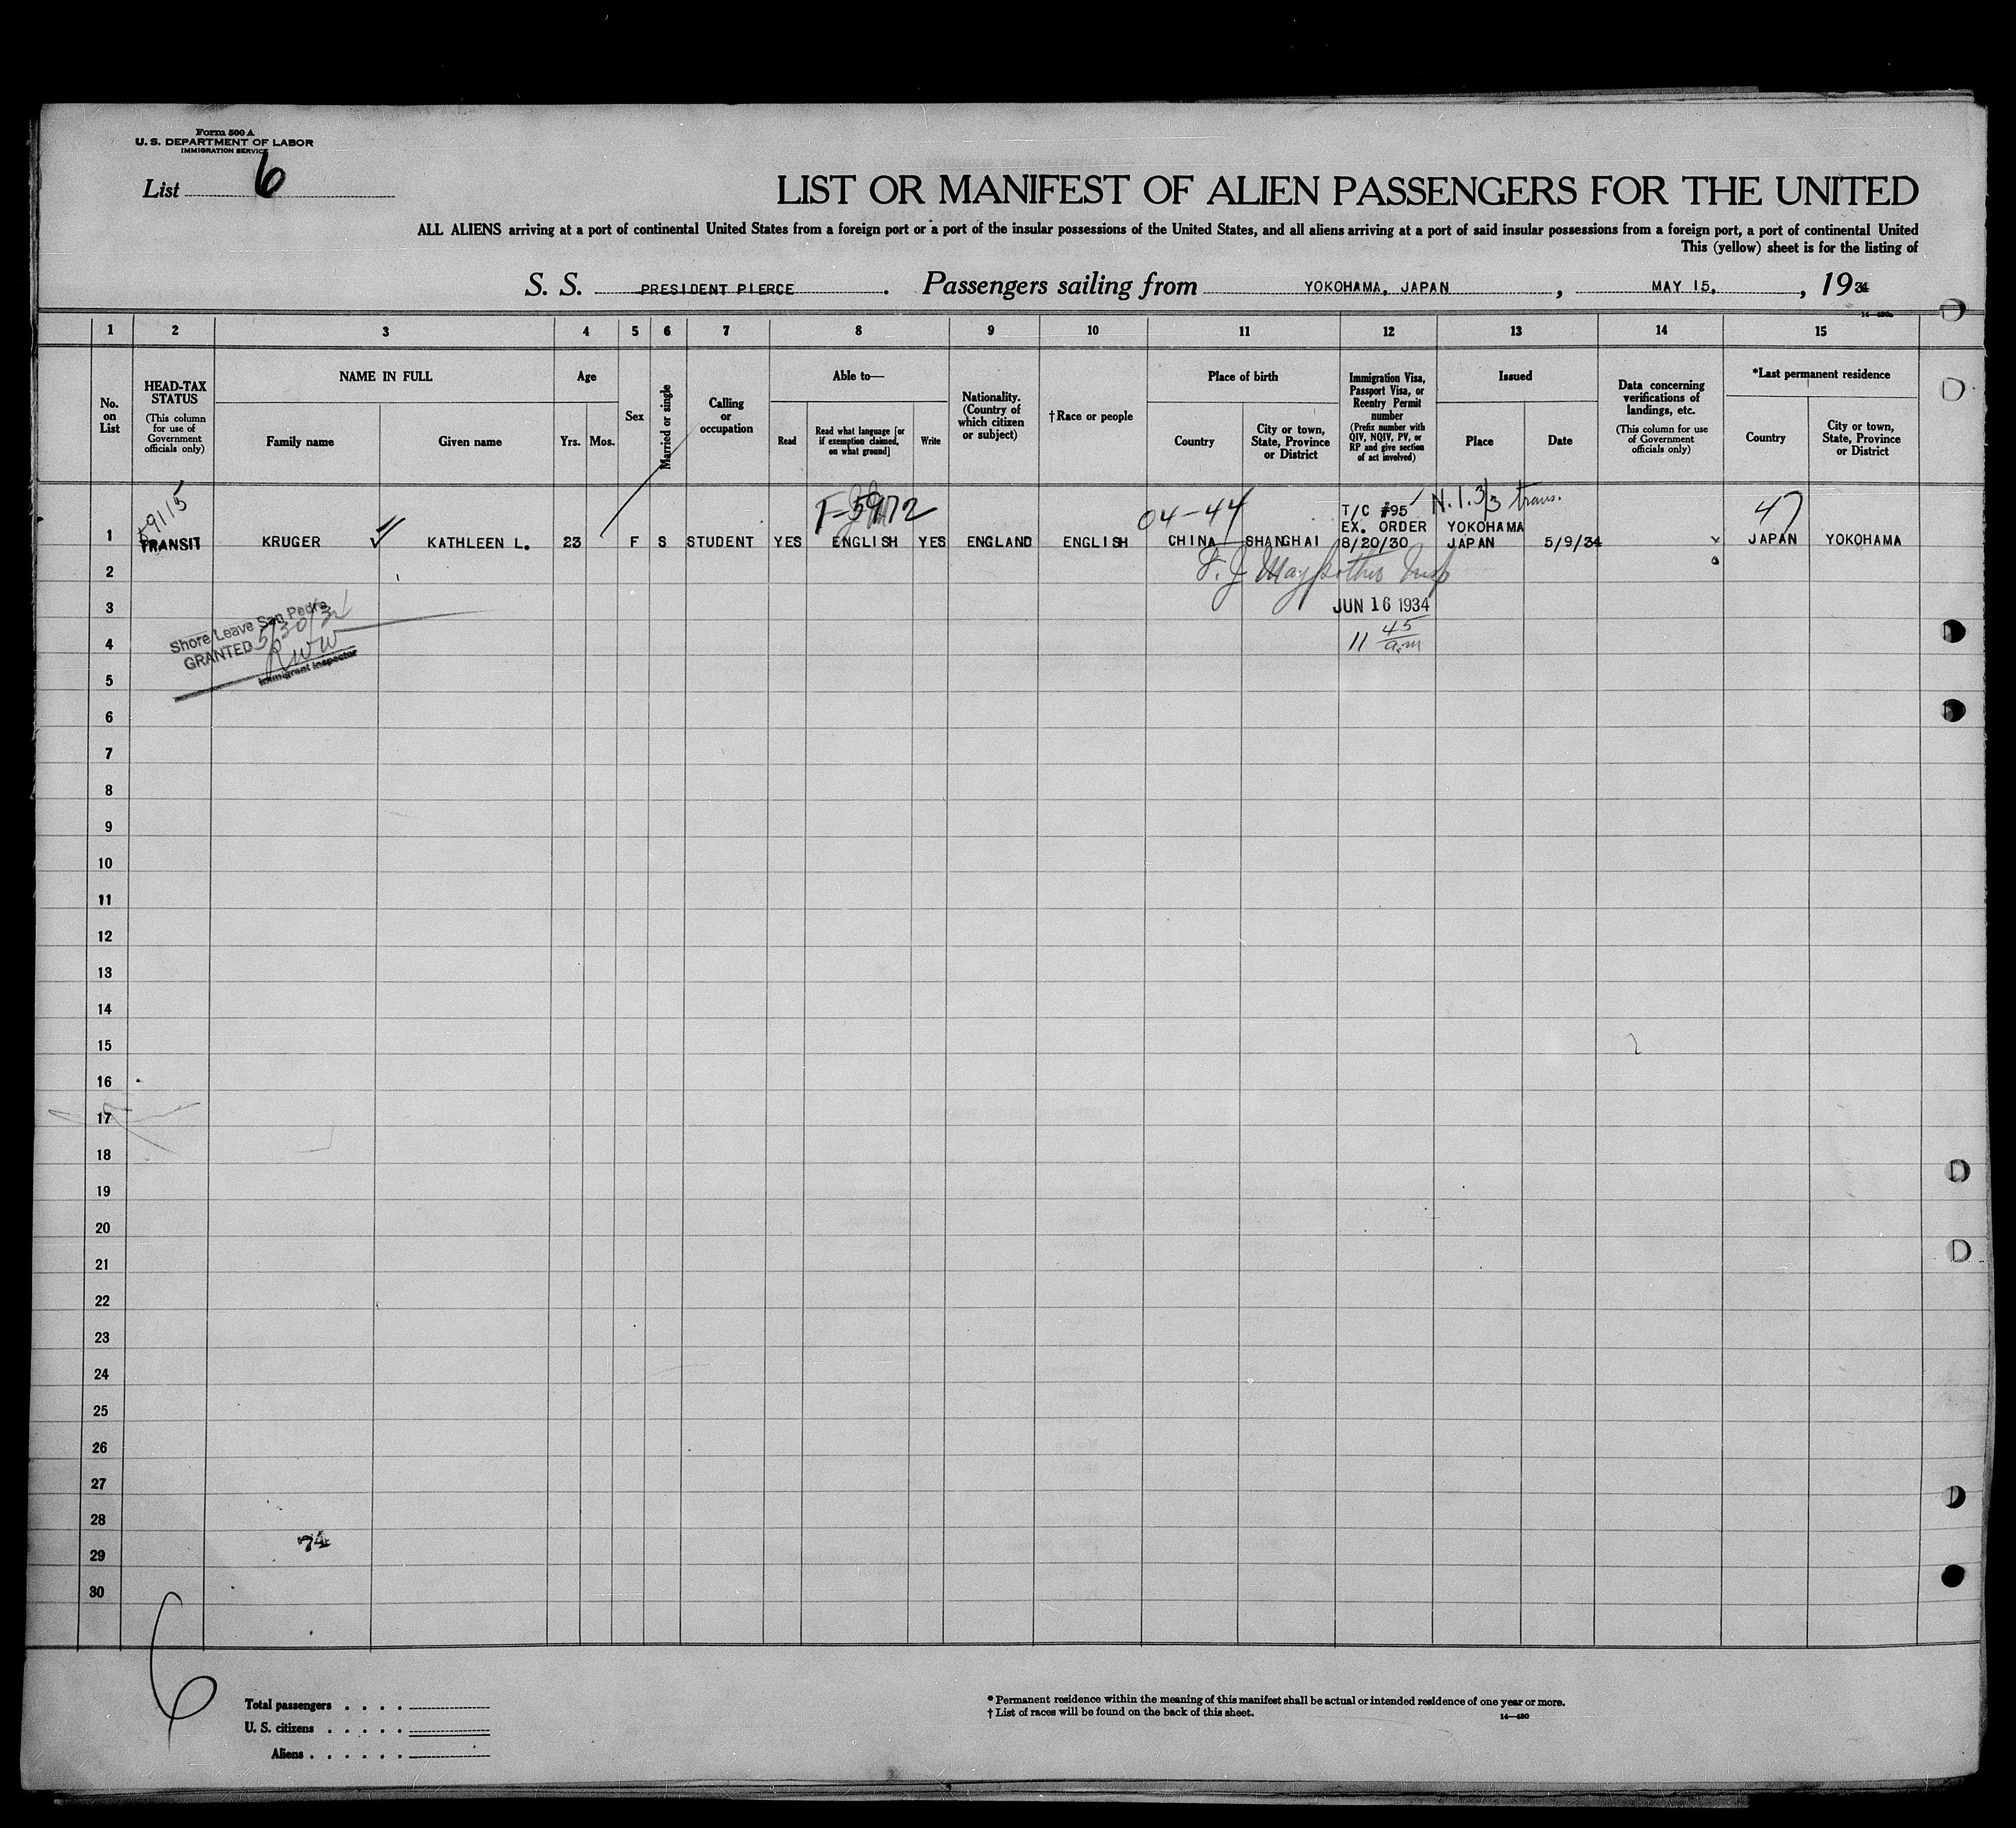 Form 500 A
U. S. DEPARTMENT OF LABOR
IMMIGRATION SERVICE
List 6
LIST OR MANIFEST OF ALIEN PASSENGERS FOR THE UNITED
ALL ALIENS arriving at a port of continental United States from a foreign port or a port of the insular possessions of the United States, and all aliens arriving at a port of said insular possessions from a foreign port, a port of continental United
This (yellow) sheet is for the listing of
S. S. PRESIDENT PIERCE. Passengers sailing from YOKOHAMA, JAPAN, MAY 15, , 1934
14—480a
1 2 3 4 5 6 7 8 9 10 11 12 13 14 15
No. on List
HEAD-TAX STATUS
(This column for use of Government officials only)
NAME IN FULL
Family name
Given name
Age
Yrs. Mos.
Sex
Married or single
Calling or occupation
Able to—
Read
Read what language [or if exemption claimed, on what ground]
Write
Nationality. (Country of which citizen or subject)
†Race or people
Place of birth
Country
City or town, State, Province or District
Immigration Visa, Passport Visa, or Reentry Permit number
(Prefix number with QIV, NQIV, PV, or RP and give section of act involved)
Issued
Place
Date
Data concerning verifications of landings, etc.
(This column for use of Government officials only)
*Last permanent residence
Country
City or town, State, Province or District
5972 04-44 T/C #95 N.I. 3/3 trans. 47
EX. ORDER YOKOHAMA
1 TRANSIT KRUGER KATHLEEN L. 23 F S STUDENT YES ENGLISH YES ENGLAND ENGLISH CHINA SHANGHAI 8/20/30 JAPAN 5/9/34 JAPAN YOKOHAMA
2
3 JUN 16 1934
Shore Leave San Pedro
GRANTED 5/30/34
RWW
Immigrant Inspector
4 11 45 a.m
5
6
7
8
9
10
11
12
13
14
15
16
17
18
19
20
21
22
23
24
25
26
27
28
74
29
30
6
Total passengers . . . .
U. S. citizens . . . . .
Aliens . . . . . .
* Permanent residence within the meaning of this manifest shall be actual or intended residence of one year or more.
† List of races will be found on the back of this sheet.
14—480